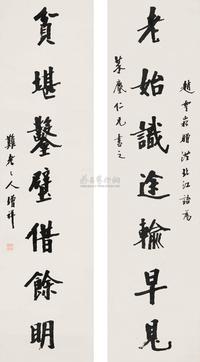 趙雲崧贈洪北江語為
老始識途輸早見
仁兄書之
貧堪鑿壁借餘明
難老々人增祥